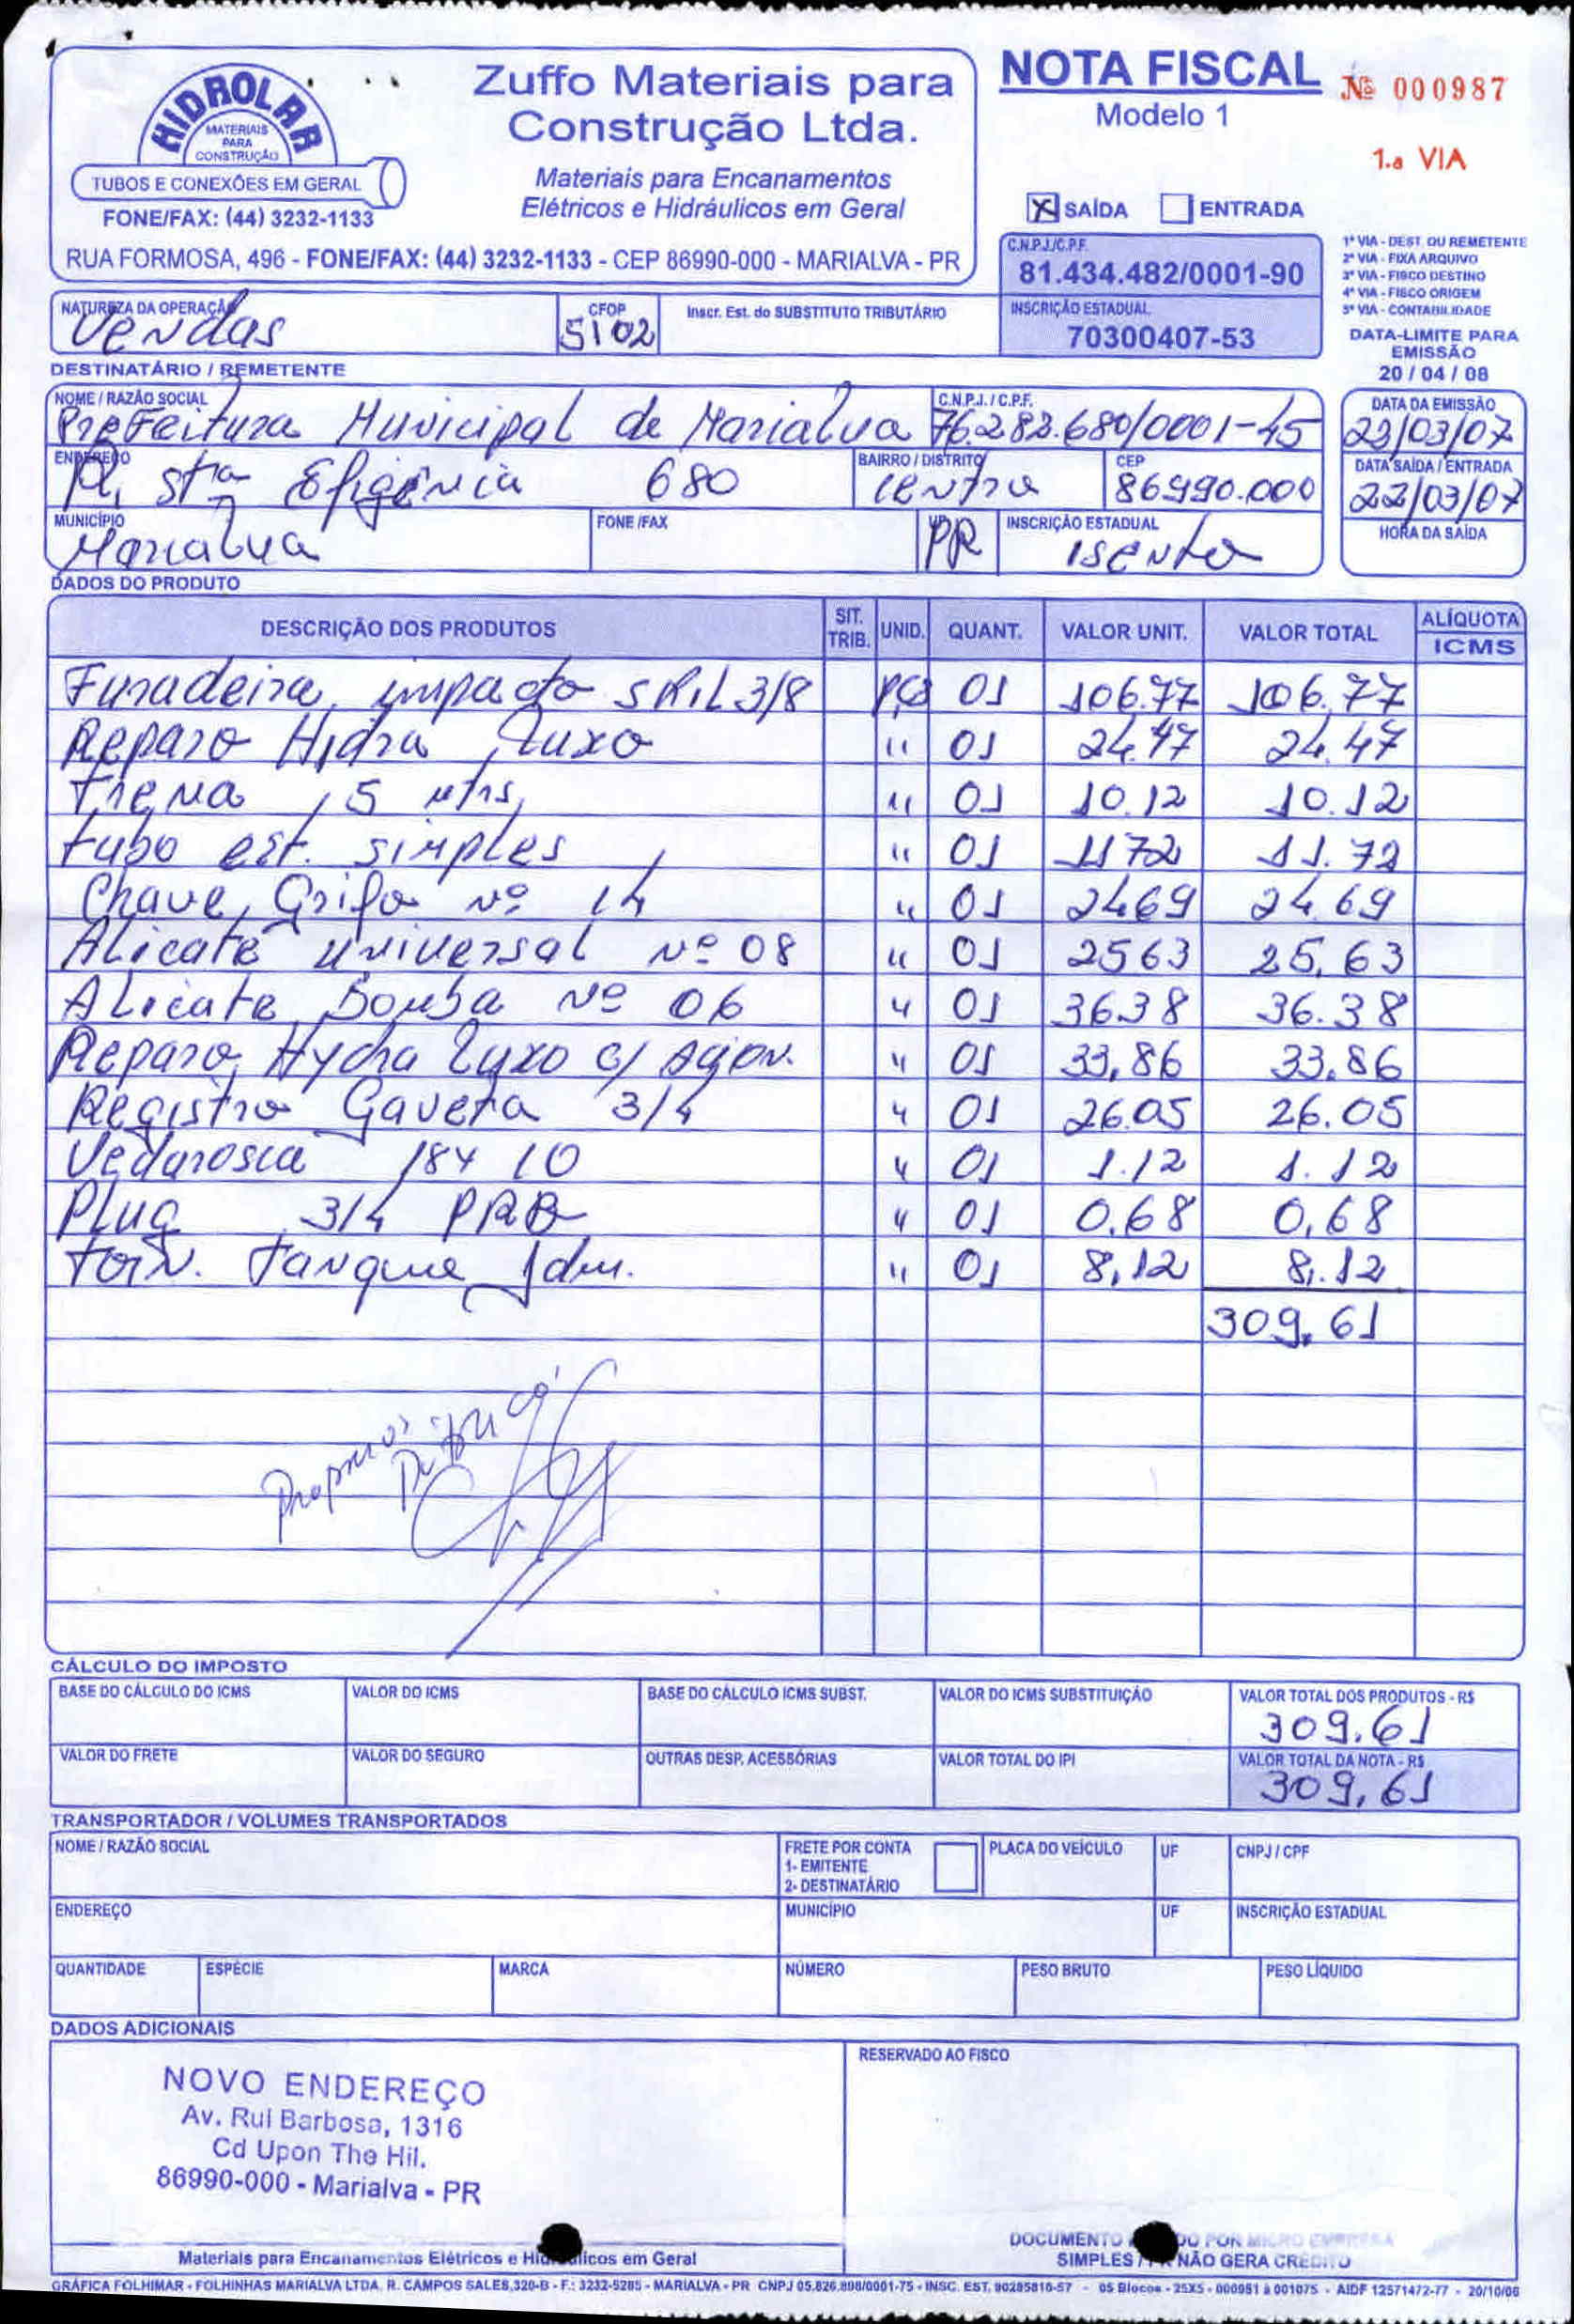 HIDROLAR
MATERIAIS
PARA
CONSTRUÇÃO
TUBOS E CONEXÕES EM GERAL
FONE/FAX: (44) 3232-1133
Zuffo Materiais para
Construção Ltda.
Materiais para Encanamentos
Elétricos e Hidráulicos em Geral
RUA FORMOSA, 496 - FONE/FAX: (44) 3232-1133 - CEP 86990-000 - MARIALVA - PR
NOTA FISCAL Nº 000987
Modelo 1
1.a VIA
X SAÍDA ENTRADA
C.N.P.J./C.P.F.
81.434.482/0001-90
INSCRIÇÃO ESTADUAL
70300407-53
1ª VIA - DEST. OU REMETENTE
2ª VIA - FIXA ARQUIVO
3ª VIA - FISCO DESTINO
4ª VIA - FISCO ORIGEM
5ª VIA - CONTABILIDADE
DATA-LIMITE PARA
EMISSÃO
20 / 04 / 08
NATUREZA DA OPERAÇÃO CFOP Inscr. Est. do SUBSTITUTO TRIBUTÁRIO
Vendas 5102
DESTINATÁRIO / REMETENTE
NOME / RAZÃO SOCIAL C.N.P.J. / C.P.F. DATA DA EMISSÃO
Prefeitura Municipal de Marialva 76.282.680/0001-45 22/03/07
ENDEREÇO BAIRRO / DISTRITO CEP DATA SAÍDA / ENTRADA
R, Stª Efigênia 680 centro 86990.000 22/03/07
MUNICÍPIO FONE /FAX UF INSCRIÇÃO ESTADUAL HORA DA SAÍDA
Marialva PR Isento
DADOS DO PRODUTO
DESCRIÇÃO DOS PRODUTOS SIT. TRIB. UNID. QUANT. VALOR UNIT. VALOR TOTAL ALÍQUOTA ICMS
Furadeira impacto SKIL 3/8 pç 01 106.77 106.77
Reparo Hidra Luxo " 01 24.47 24.47
Trena 5 mtrs " 01 10.12 10.12
tubo est. simples " 01 1172 11.72
Chave Grifo nº 14 " 01 2469 24.69
Alicate universal nº 08 " 01 2563 25,63
Alicate Bomba nº 06 " 01 36.38 36.38
Reparo Hydra Luxo c/ " 01 33,86 33.86
Registro Gaveta 3/4 " 01 26.05 26.05
Vedarosca 18x10 " 01 1.12 1.12
Plug 3/4 " 01 0.68 0,68
torn. Tanque " 01 8,12 8.12
309,61
CÁLCULO DO IMPOSTO
BASE DO CÁLCULO DO ICMS VALOR DO ICMS BASE DO CÁLCULO ICMS SUBST. VALOR DO ICMS SUBSTITUIÇÃO VALOR TOTAL DOS PRODUTOS - R$
309.61
VALOR DO FRETE VALOR DO SEGURO OUTRAS DESP. ACESSÓRIAS VALOR TOTAL DO IPI VALOR TOTAL DA NOTA - R$
309,61
TRANSPORTADOR / VOLUMES TRANSPORTADOS
NOME / RAZÃO SOCIAL FRETE POR CONTA PLACA DO VEÍCULO UF CNPJ / CPF
1- EMITENTE
2- DESTINATÁRIO
ENDEREÇO MUNICÍPIO UF INSCRIÇÃO ESTADUAL
QUANTIDADE ESPÉCIE MARCA NÚMERO PESO BRUTO PESO LÍQUIDO
DADOS ADICIONAIS
RESERVADO AO FISCO
NOVO ENDEREÇO
Av. Rui Barbosa, 1316
Cd Upon The Hil.
86990-000 - Marialva - PR
Materiais para Encanamentos Elétricos e Hidráulicos em Geral
DOCUMENTO POR MICRO EMPRESA
SIMPLES NÃO GERA CRÉDITO
GRÁFICA FOLHIMAR - FOLHINHAS MARIALVA LTDA. R. CAMPOS SALES,320-B - F.: 3232-5285 - MARIALVA - PR CNPJ 05.826.898/0001-75 - INSC. EST. 90285816-57 - 05 Blocos - 25X5 - 000951 à 001075 - AIDF 12571472-77 - 20/10/06